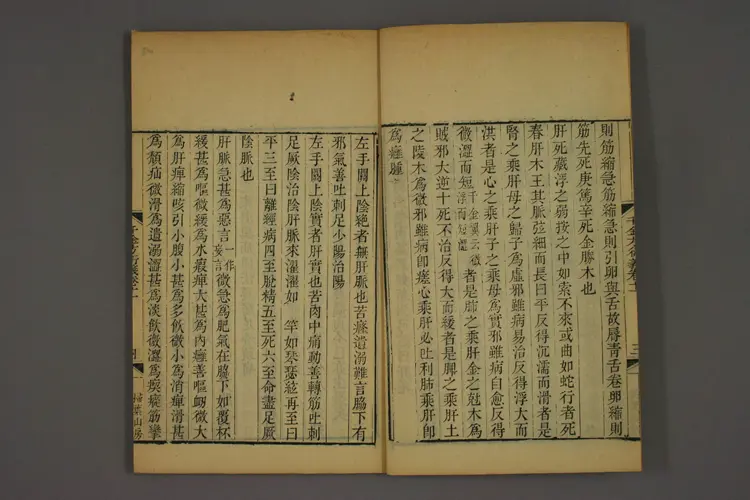 則筋縮急筋縮急則引卵與舌故脣青舌卷卵縮則
筋先死庚篤辛死金勝木也
肝死藏浮之弱按之中如索不來或曲如蛇行者死
春肝木王其脈弦細而長曰平反得沉濡而滑者是
腎之乘肝母之歸子為虛邪雖病易治反得浮大而
洪者是心之乘肝子之乘母為實邪雖病自愈反得
微濇而短千金翼云微浮而短濇者是肺之乘肝金之尅木為
賊邪大逆十死不治反得大而緩者是脾之乘肝土
之陵木為微邪雖病即瘥心乘肝必吐利肺乘肝即
為癰腫
左手關上陰絕者無肝脈也苦癃遺溺難言脇下有
邪氣善吐刺足少陽治陽
左手關上陰實者肝實也苦肉中痛動善轉筋吐刺
足厥陰治陰肝脈來濯濯如 竿如琴瑟絃再至曰
平三至曰離經病四至脫精五至死六至命盡足厥
陰脈也
肝脈急甚為惡言一作妄言微急為肥氣在脇下如覆杯
緩甚為嘔微緩為水瘕痺大甚為內癰善嘔衂微大
為肝痺縮咳引小腹小甚為多飲微小為消痺滑甚
為㿗疝微滑為遺溺濇甚為淡飲微濇為瘈瘲筋攣
三
掃葉山房